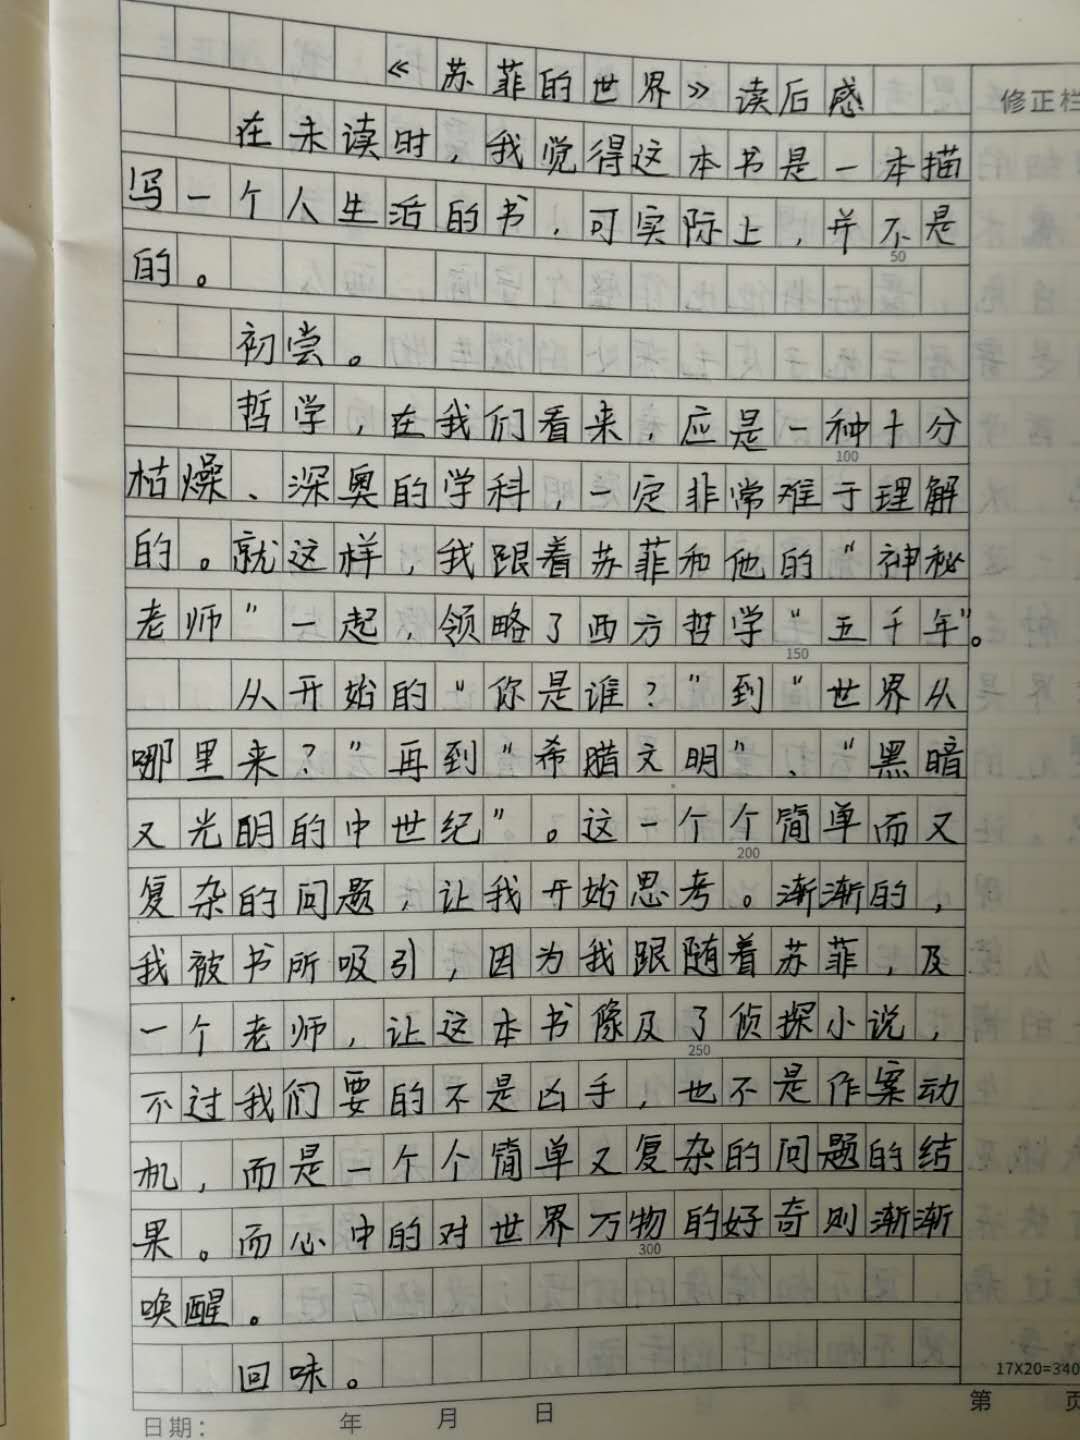 《苏菲的世界》读后感
修正栏
在未读时，我觉得这本书是一本描
写一个人生活的书，可实际上，并不是
50
的。
初尝。
哲学，在我们看来，应是一种十分
100
枯燥、深奥的学科，一定非常难于理解
的。就这样，我跟着苏菲和他的“神秘
老师”一起，领略了西方哲学“五千年”。
150
从开始的“你是谁？”到“世界从
哪里来？”再到“希腊文明”、“黑暗
又光明的中世纪”。这一个个简单而又
200
复杂的问题，让我开始思考。渐渐的，
我被书所吸引，因为我跟随着苏菲，及
一个老师，让这本书像及了侦探小说，
250
不过我们要的不是凶手，也不是作案动
机，而是一个个简单又复杂的问题的结
果。而心中的对世界万物的好奇则渐渐
300
唤醒。
回味。
17X20=340
日期： 年 月 日 第 页